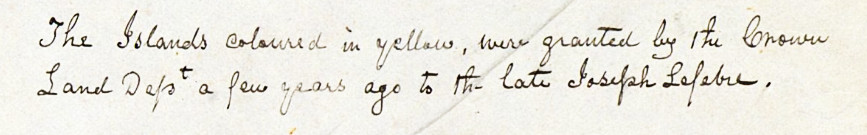 The Islands coloured in yellow, were granted by the Crown
Land Depst a few years ago to th- late Joseph Lefebre.